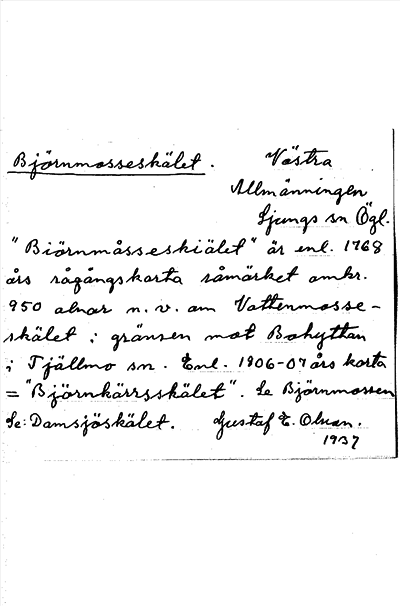 Björnmosseskälet. Västra
Allmänningen
Ljungs sn Ögl.
"Biörnmåsseskiälet" är enl. 1768
års rågångskarta råmärket omkr.
950 alnar n. v. om Vattenmosse-
skälet i gränsen mot Bohyttan
i Tjällmo sn. Enl. 1906-07 års karta
= "Björnkärrsskälet". Se Björnmossen
Se: Damsjöskälet. Gustaf E. Olsson.
1937